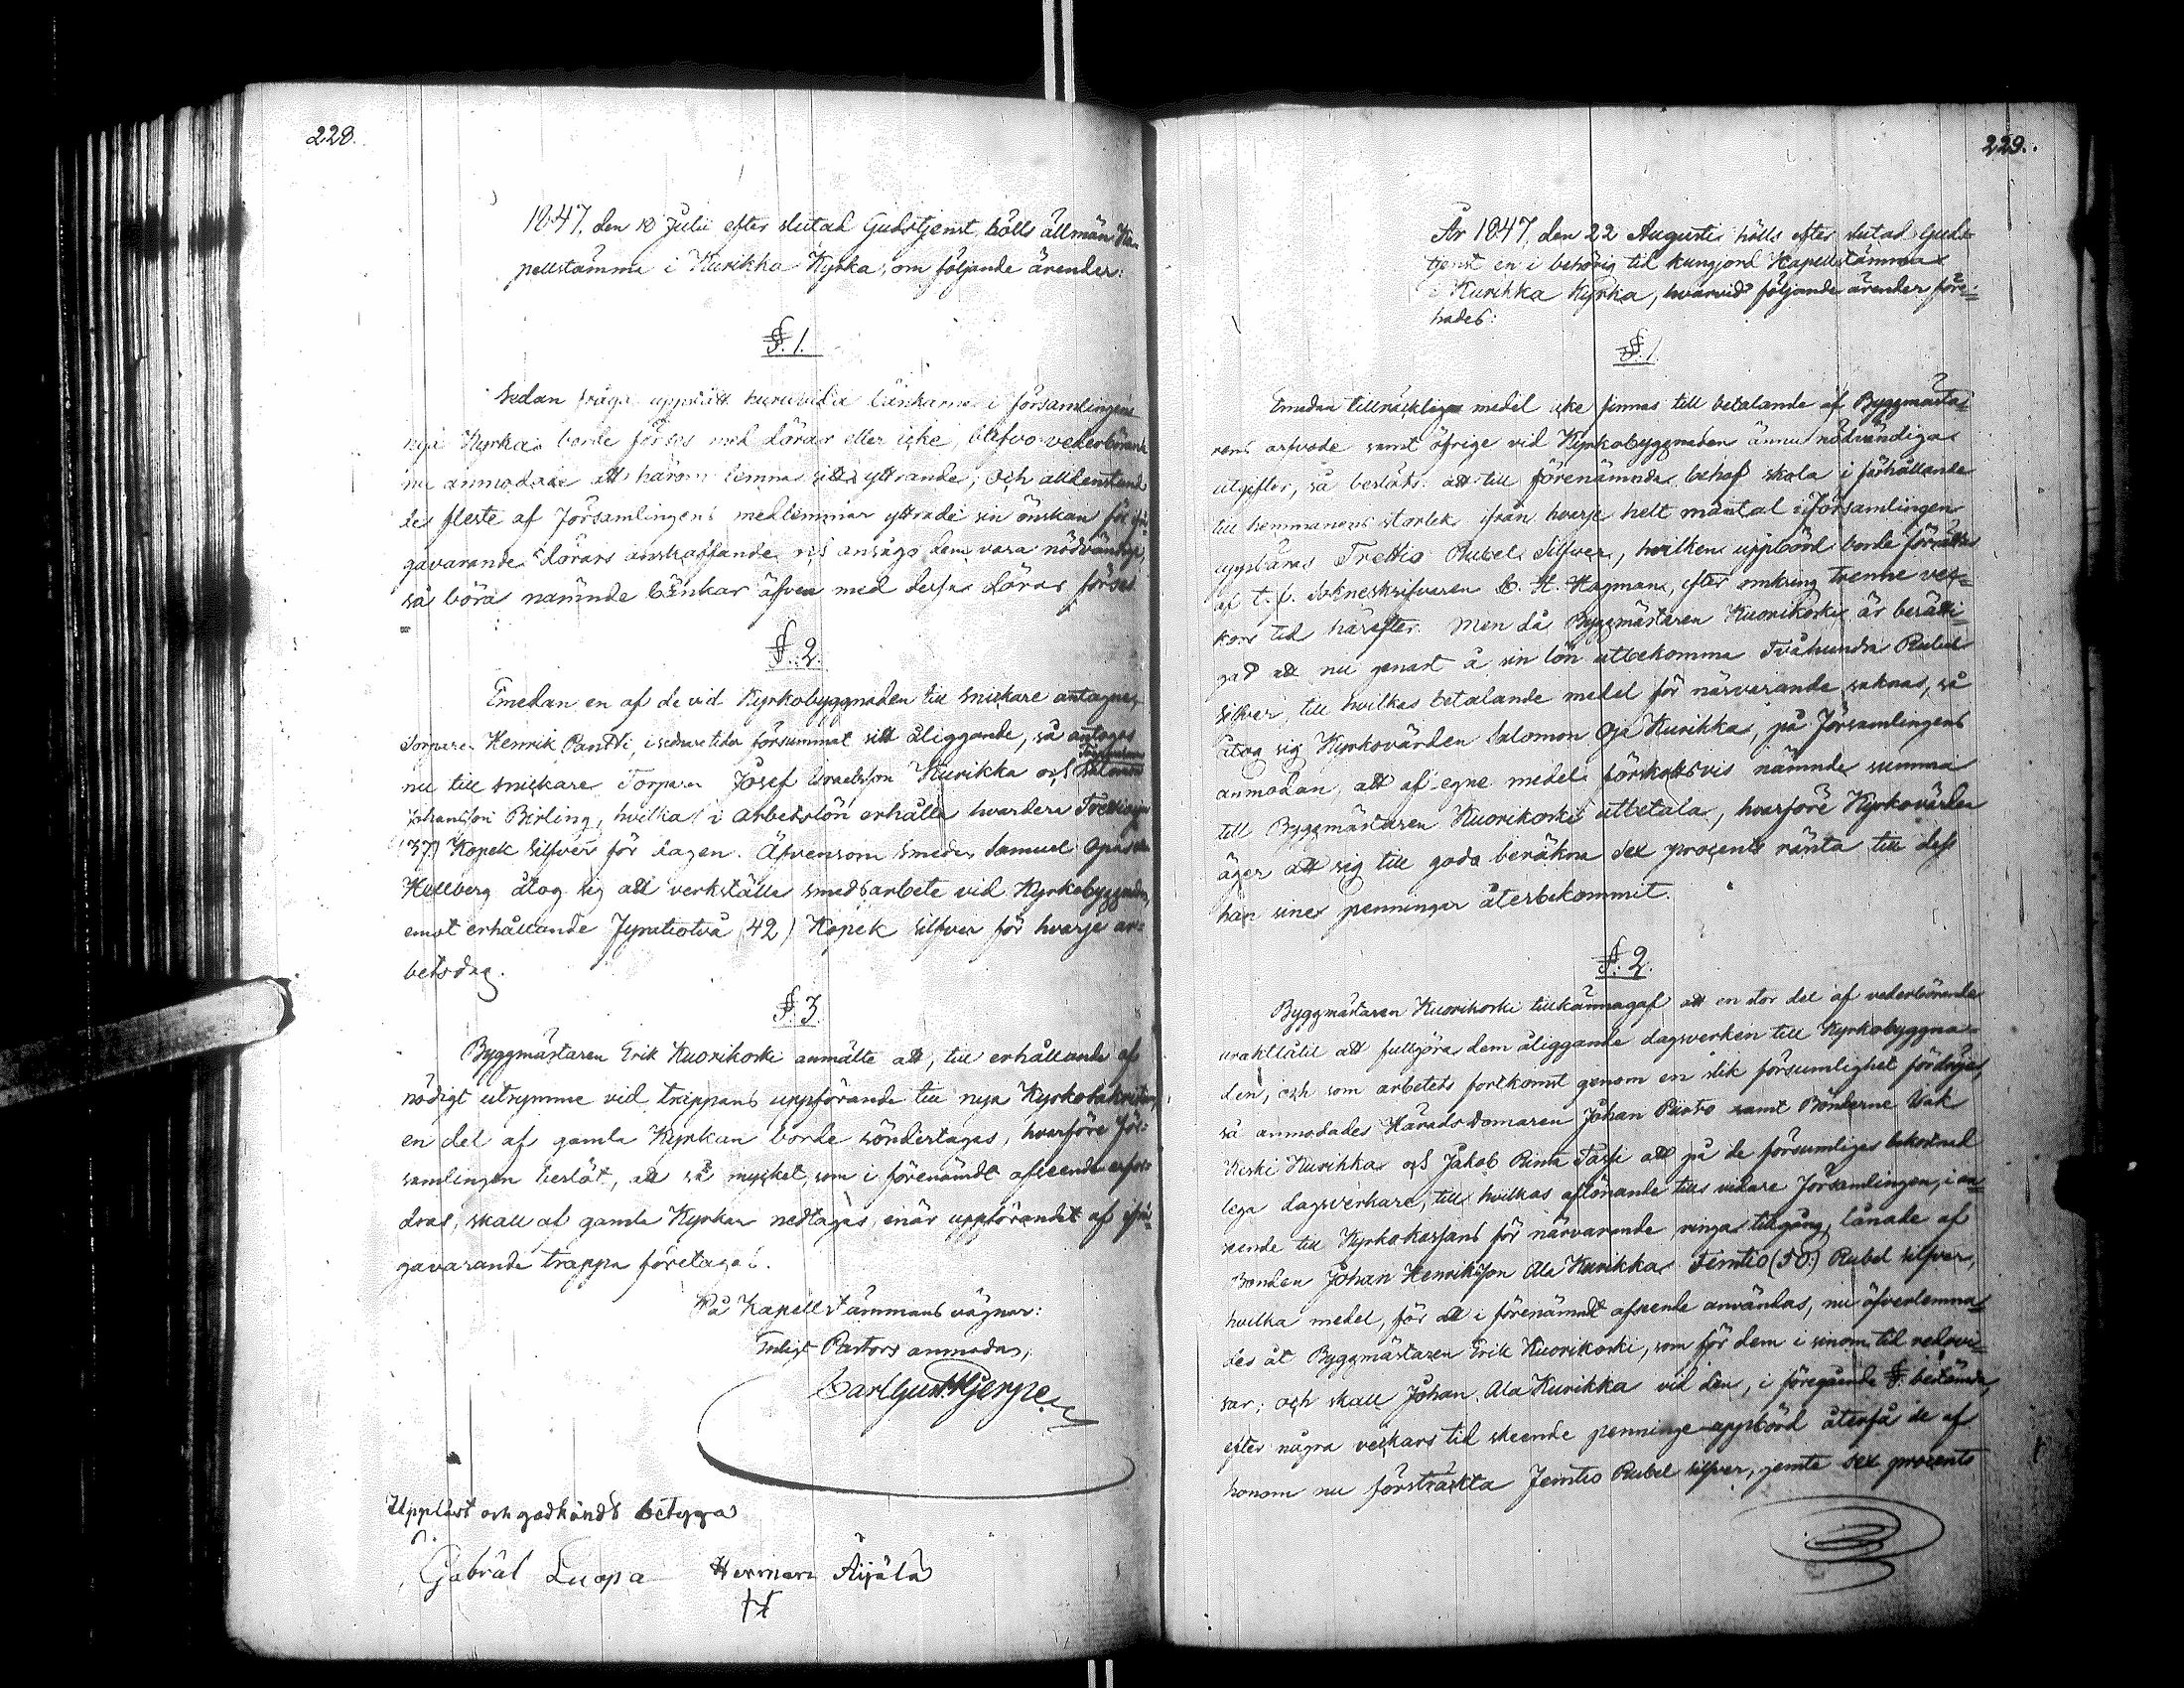 228.
1847, den 18 Julii efter slutad Gudstjenst, hölls allmän Ka-
pellstämma i Kurikka Kyrka, om följande ärender:
§. 1.
Sedan fråga uppstått huruvida bänkarne i församlingens
nya Kyrka borde förses med dörar eller icke, blefvo vederbörande
nu anmodade att härom lemna sitt yttrande; och alldenstund
de fleste af Församlingens medlemmar yttrade sin önskan för ifrå-
gavarande dörars anskaffande och ansågo dem vara nödvändige,
så böra nämnde bänkar äfven med dessa dörar förses.
§. 2.
Emedan en af de vid Kyrkobyggnaden till snickare antagne,
Sonaren Henrik Pantti, i sednare tider försummat sitt åliggande, så antoges
nu till snickare Torparen Josef Israelsson Kurikka och Salomon
Johansson Birling, hvilka i arbetslön erhålla hvardera Trettiosju
(37) Kopek Silfver för dagen. Äfvensom Smeden Samuel
Hellberg åtog sig att verkställa smedsarbete vid Kyrkobyggnaden,
emot erhållande Fyratiotvå (42) Kopek Silfver för hvarje ar-
betsdag.
§. 3.
Byggmästaren Erik Kuorikoski anmälte att, till erhållande af
nödigt utrymme vid trappans uppförande till nya Kyrkosakristian,
en del af gamla Kyrkan borde söndertagas, hvarföre För-
samlingen beslöt, att så mycket, som i förenämdt afseende erfor-
dras, skall af gamla Kyrkan nedtagas, enär uppförandet af ifrå-
gavarande trappa företages.
På Kapellstämmans vägnar:
Enligt Pastors anmodan,
Carl Gust. Hjerpe
Uppläst och godkändt betyga
Gabriel Luopa Herman Äijälä
229.
År 1847, den 22 Augusti hölls efter slutad Guds-
tjenst en i behörig tid kungjord Kapellstämma
i Kurikka Kyrka, hvarvid följande ärender före-
hades:
§. 1.
Emedan tillräcklige medel icke finnas till betalande af Byggmästa-
rens arfvode samt öfrige vid Kyrkobyggnaden ännu nödvändiga
utgifter, så beslöts: att till förenämnde behof skola i förhållande
till hemmanens storlek ifrån hvarje helt mantal i Församlingen
uppbäras Trettio Rubel Silfver, hvilken uppbörd borde förrättas
af t. f. Sockneskrifvaren C. H. Hagman, efter omkring trenne vec-
kors tid härefter. Men då Byggmästaren Kuorikoski är berätti-
gad att nu genast å sin lön utbekomma Tvåhundra Rubel
Silfver, till hvilkas betalande medel för närvarande saknas, så
åtog sig Kyrkovärden Salomon Oja Kurikka, på Församlingens
anmodan, att af egne medel förskottsvis nämnde summa
till Byggmästaren Kuorikoski utbetala, hvarföre Kyrkovärden
äger att sig till godo beräkna sex procents ränta till dess
han sine penningar återbekommit.
§. 2.
Byggmästaren Kuorikoski tillkännagaf att en stor del af vederbörande
uraktlåtit att fullgöra dem åliggande dagsverken till Kyrkobyggna-
den, och som arbetets fortkomst genom en slik försumlighet fördröjes,
så anmodades Häradsdomaren Johan Puisto samt Bönderne Isak
Keski Kurikka och Jakob Rinta Tassi att på de försumliges bekostnad
lega dagsverkare, till hvilkas aflönande tills vidare Församlingen, i an-
seende till Kyrkokassans för närvarande ringa tillgång, lånade af
Bonden Johan Henriksson Ala Kurikka Femtio (50) Rubel silfver,
hvilka medel, för att i förenämndt afseende användas, nu öfverlemna-
des åt Byggmästaren Erik Kuorikoski, som för dem i sinom tid redovi-
sar; och skall Johan Ala Kurikka vid den, i föregående §. bestämde,
efter några veckors tid skeende penninge-uppbörd återfå de af
honom nu försträckta Femtio Rubel silfver, jemte sex procents